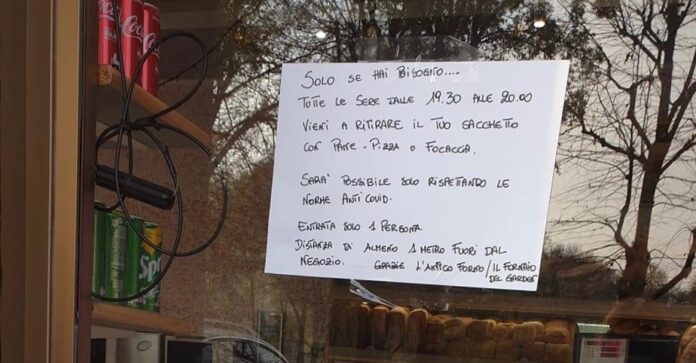 Coca-Cola
SOLO SE HAI BISOGNO....
TUTTE LE SERE DALLE 19.30 ALLE 20.00
VIENI A RITIRARE IL TUO SACCHETTO
CON PANE - PIZZA O FOCACCA.
SARA' POSSIBILE SOLO RISPETTANDO LE
NORME ANTI COVID.
ENTRATA SOLO 1 PERSONA
DISTANZA DI ALMENO 1 METRO FUORI DAL
NEGOZIO. GRAZIE L'ANTICO FORNO/IL FORNAIO
DEL GARDEN
Spri